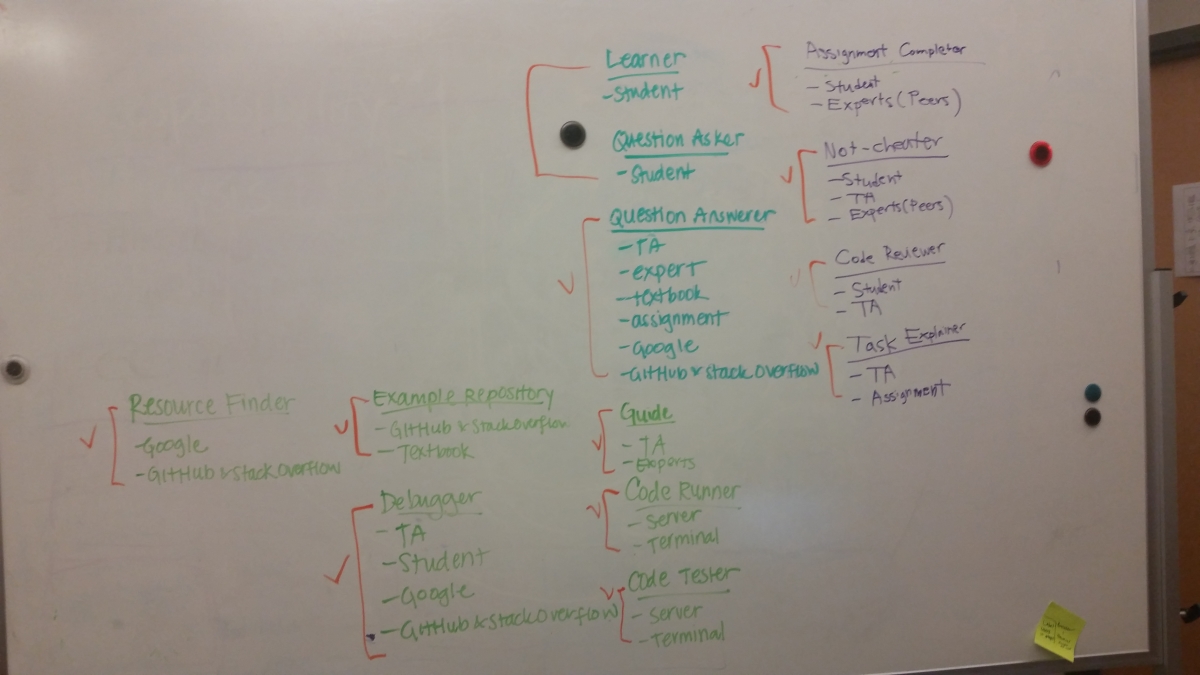 Learner
-Student
Question Asker
-Student
Question Answerer
-TA
-expert
-textbook
-assignment
-Google
-GitHub & StackOverflow
Assignment Completor
- Student
- Experts (Peers)
Not-cheater
-Student
- TA
- Experts (Peers)
Code Reviewer
- Student
- TA
Task Explainer
- TA
- Assignment
Resource Finder
-Google
-GitHub & StackOverflow
Example Repository
- GitHub & StackOverflow
- Textbook
Debugger
- TA
-Student
-Google
-GitHub & StackOverflow
Guide
- TA
-Experts
Code Runner
- Server
- Terminal
Code Tester
- Server
-Terminal